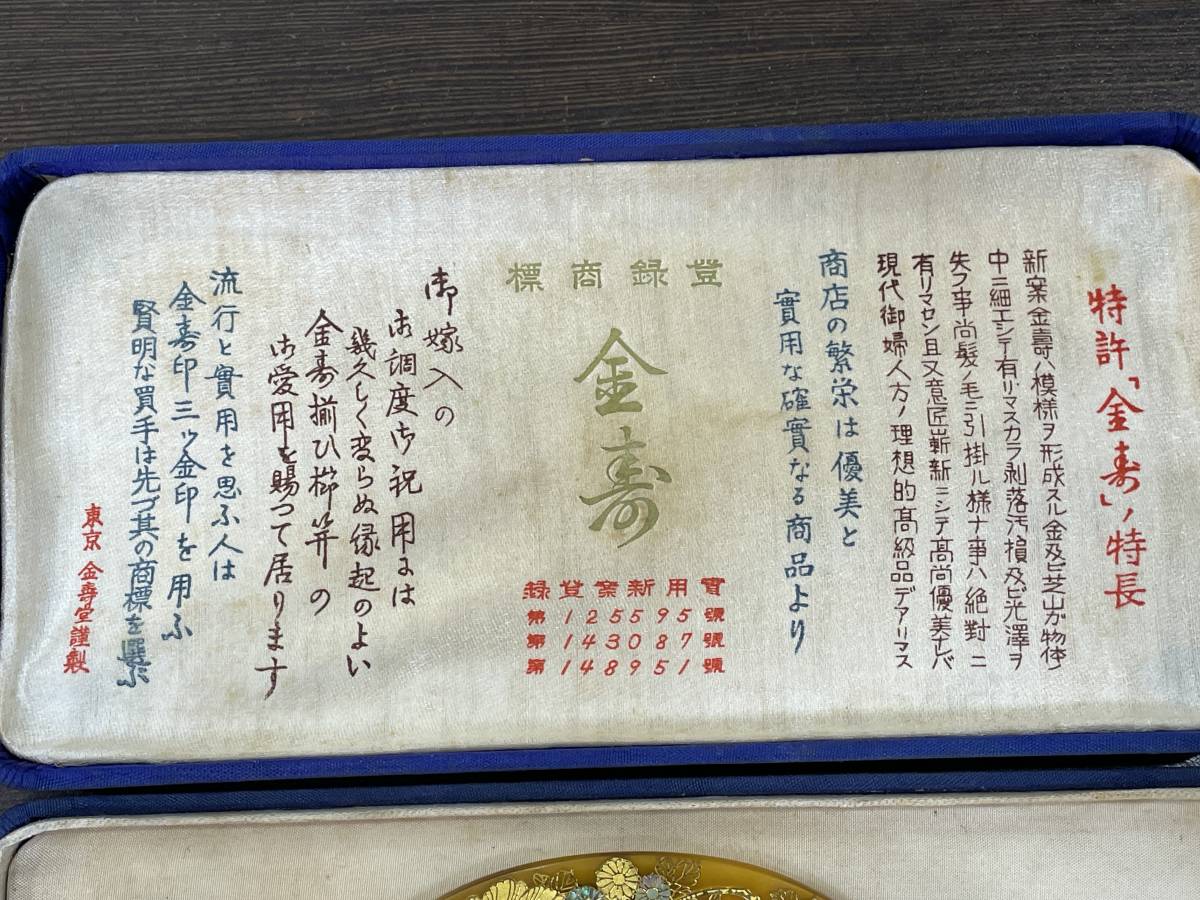 特許「金寿」ノ特長
新案金壽ハ模様ヲ形成スル金及ビ芝山ガ物体
中ニ細工シテ有リマスカラ剥落汚損及ビ光澤ヲ
失フ事尚髪ノ毛ニ引掛ル様ナ事ハ絶對ニ
有リマセン且又意匠嶄新ニシテ高尚優美ナレバ
現代御婦人方ノ理想的高級品デアリマス
商店の繁栄は優美と
實用な確實なる商品より
標商録登
金寿
録登案新用實
第125595號
第143087號
第148951號
御嫁入の
御調度御祝用には
幾久しく変らぬ縁起のよい
金寿揃ひ櫛笄の
御愛用を賜つて居ります
流行と實用を思ふ人は
金寿印三ッ金印を用ふ
賢明な買手は先づ其の商標を選ぶ
東京 金壽堂謹製